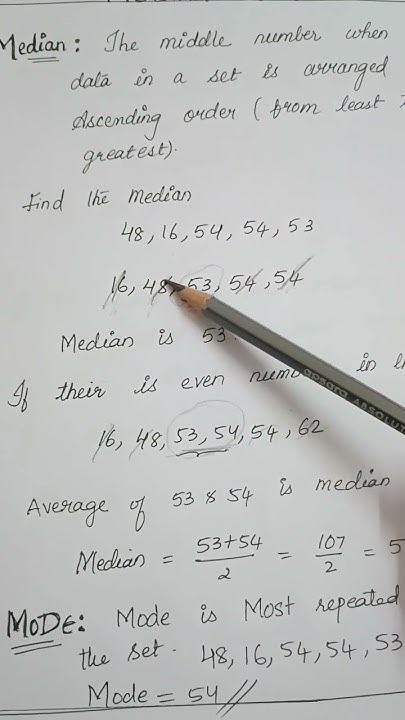 Median: The middle number when
data in a set is arranged
Ascending order (from least
greatest).
Find the Median
48, 16, 54, 54, 53
16, 48, 53, 54, 54
Median is 53.
If their is even in
apsara ABSOLUT
16, 48, 53, 54, 54, 62
Average of 53 & 54 is median
Median = 53+54/2 = 107/2 = 5
MODE: Mode is Most repeated
the set. 48, 16, 54, 54, 53
Mode = 54 //